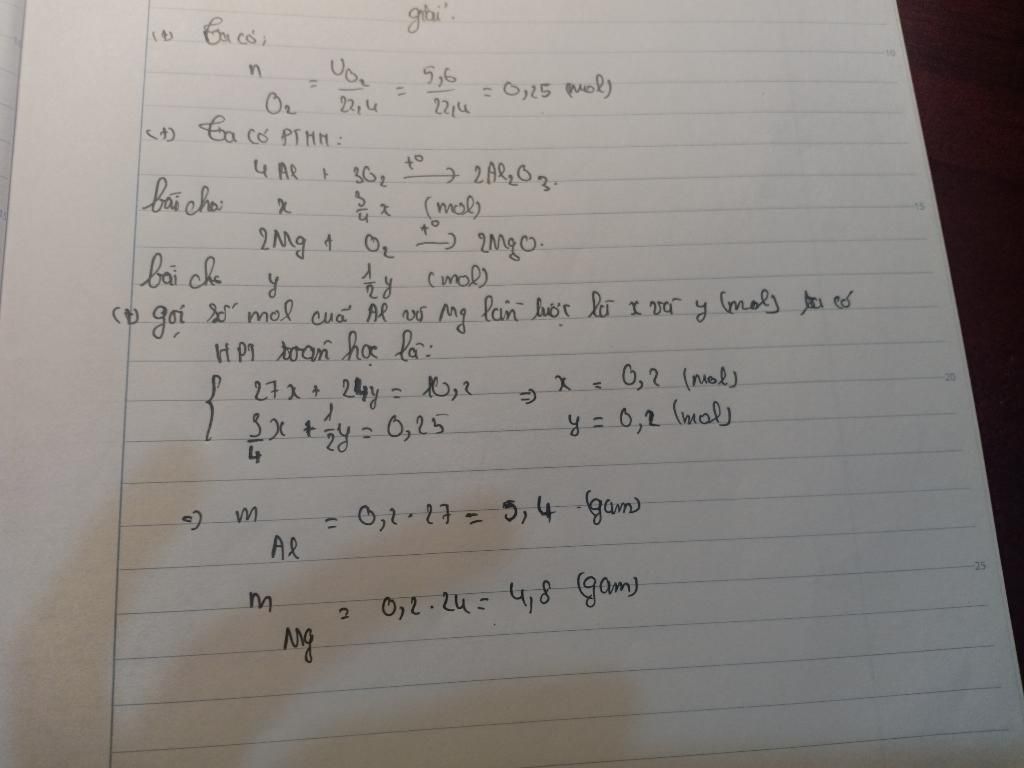 giải.
(+) Ta có:
n O₂ = V O₂ / 22,4 = 5,6 / 22,4 = 0,25 (mol)
(+) Ta có PTHH:
4Al + 3O₂ →(t°) 2Al₂O₃.
bài cho: x 3/4 x (mol)
2Mg + O₂ →(t°) 2MgO.
bài cho y 1/2 y (mol)
(+) gọi số mol của Al và Mg lần lượt là x và y (mol) ta có
HPT toán học là:
{ 27x + 24y = 10,2 ⇒ x = 0,2 (mol)
3/4 x + 1/2 y = 0,25 y = 0,2 (mol)
⇒ m Al = 0,2 . 27 = 5,4 (gam)
m Mg = 0,2 . 24 = 4,8 (gam)
10
15
20
25